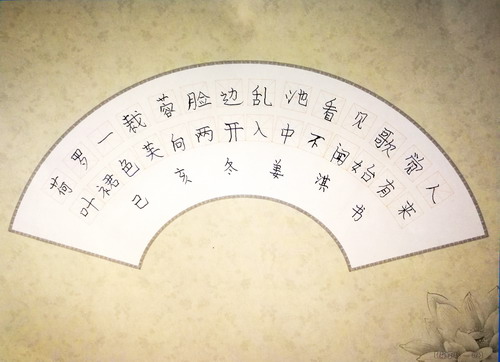 荷叶
罗裙
一色
栽芙
蓉向
脸两
边开
乱入
池中
看不
见闻
歌始
觉有
人来
己亥冬姜淇书